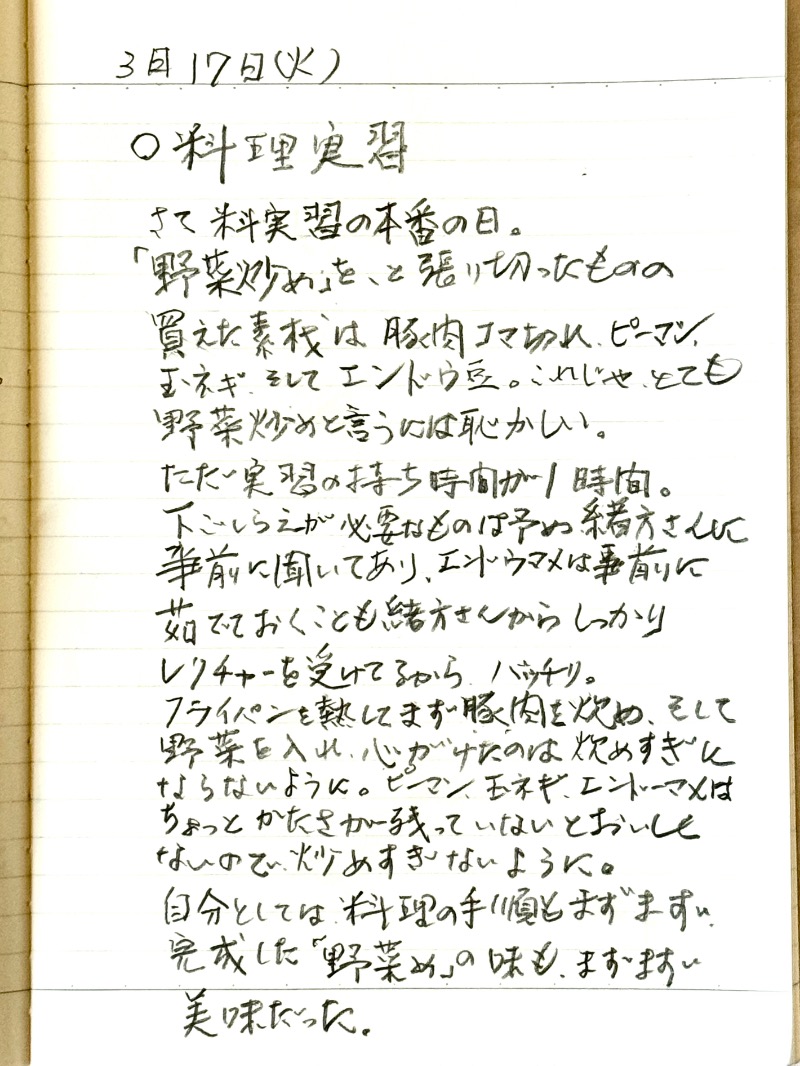 3月17日(火)
○料理実習
さて料実習の本番の日。
「野菜炒め」を、と張り切ったものの
買えた素材は豚肉コマ切れ、ピーマン、
玉ネギ、そしてエンドウ豆。これじゃ、とても
野菜炒めと言うには恥かしい。
ただ実習の持ち時間が1時間。
下ごしらえが必要なものは予め緒方さんに
事前に聞いてあり、エンドウマメは事前に
茹でておくことも緒方さんからしっかり
レクチャーを受けてるから、バッチリ。
フライパンを熱してまず豚肉を炊め、そして
野菜を入れ、心がけたのは炊めすぎに
ならないように。ピーマン、玉ネギ、エンドーマメは
ちょっとかたさが残っていないとおいしく
ないので、炒めすぎないように。
自分としては、料理の手順もまずまず、
完成した「野菜め」の味も、まずまず
美味だった。